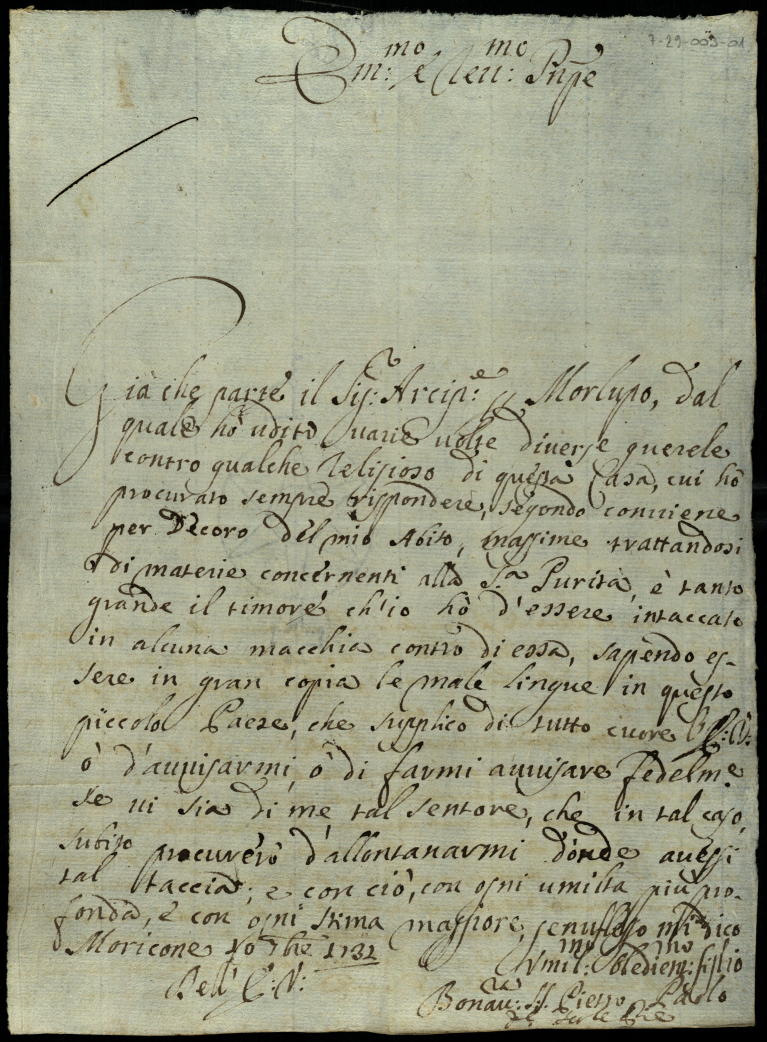 7-29-009-01
Em:mo e Reu:mo Pnpe
Già che parte il Sig:r Arcip:e p Morlupo, dal
quale hò udito varie volte diverse querele
contro qualche Religioso di questa Casa, cui hò
procurato sempre rispondere, segondo conviene
per Decoro del mio Abito, massime trattandosi
di materie concernenti alla S.a Purità, è tanto
grande il timore ch'io hò d'essere intaccato
in alcuna macchia contro di essa, sapendo es-
sere in gran copia le male lingue in questo
piccolo Paese, che supplico di tutto cuore
ò d'auuisarmi, ò di farmi auuisare fedelm.e
se ui sia di me tal sentore, che in tal caso,
subito procurerò d'allontanarmi donde auessi
tal taccia; e con ciò, con ogni umiltà più pro-
fonda, e con ogni stima maggiore, genuflesso mi dico
Moricone 1731
Dell' E: V:
Vmil:mo Obedien:mo figlio
Bonau:ra Pietro Paolo